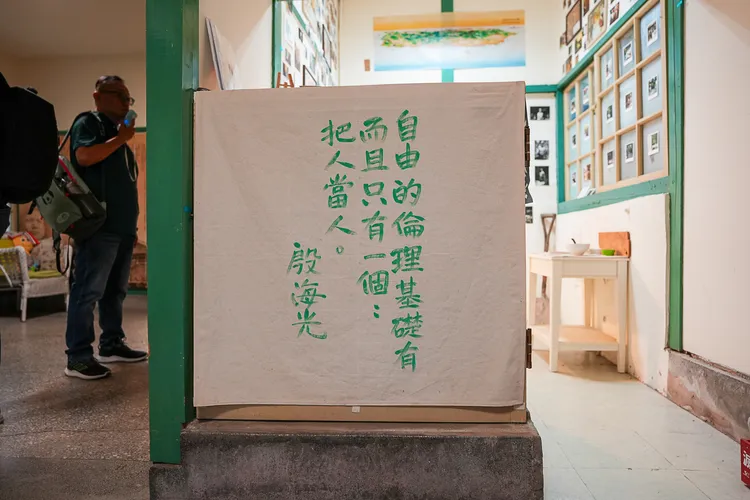 自由的倫理基礎有
而且只有一個：
把人當人。
殷海光